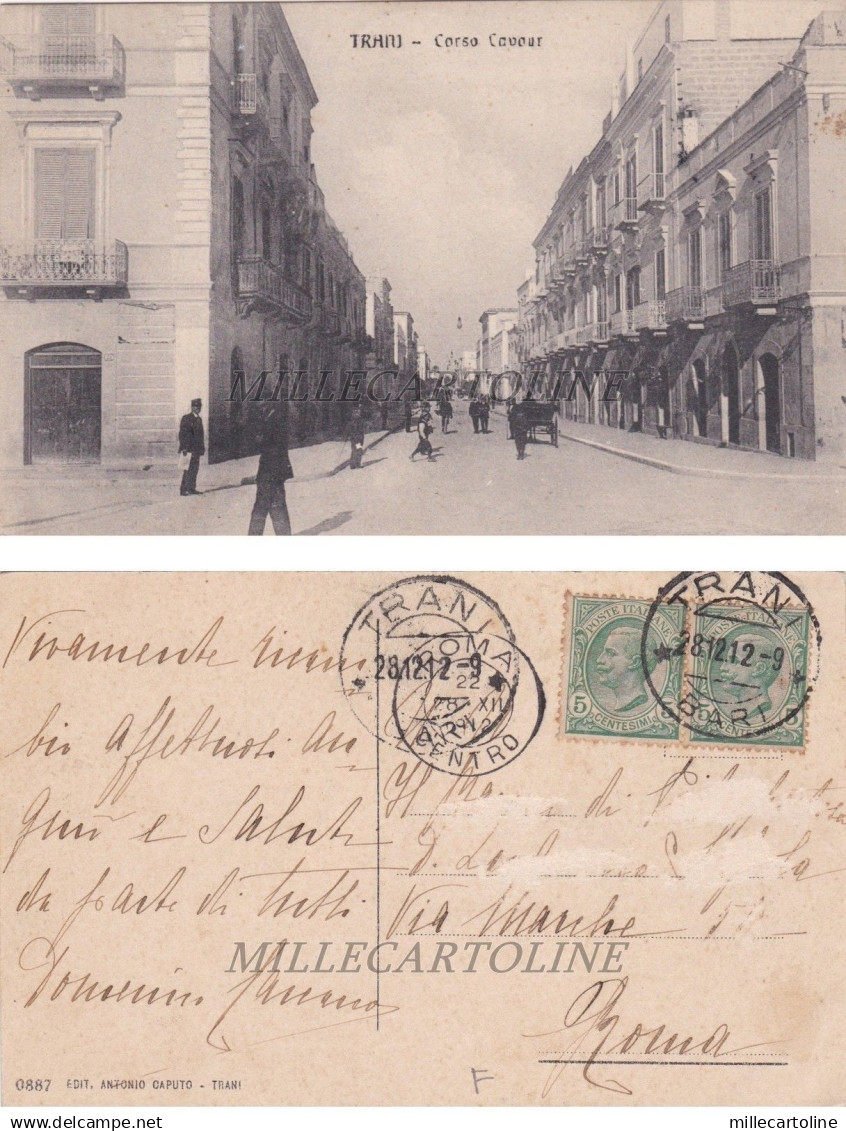 TRANI - Corso Cavour
MILLECARTOLINE
Vivamente ricam
bio affettuosi au
guri e Saluti
da parte di tutti
Domenico
TRANI
28.12.12-9
ROMA
22
28 XII
CENTRO
POSTE ITALIANE
5 CENTESIMI 5
TRANI
28.12.12-9
BARI
Il di
D.
Via Marche
Roma
MILLECARTOLINE
0887 EDIT. ANTONIO CAPUTO - TRANI
F
delcampe.net
millecartoline